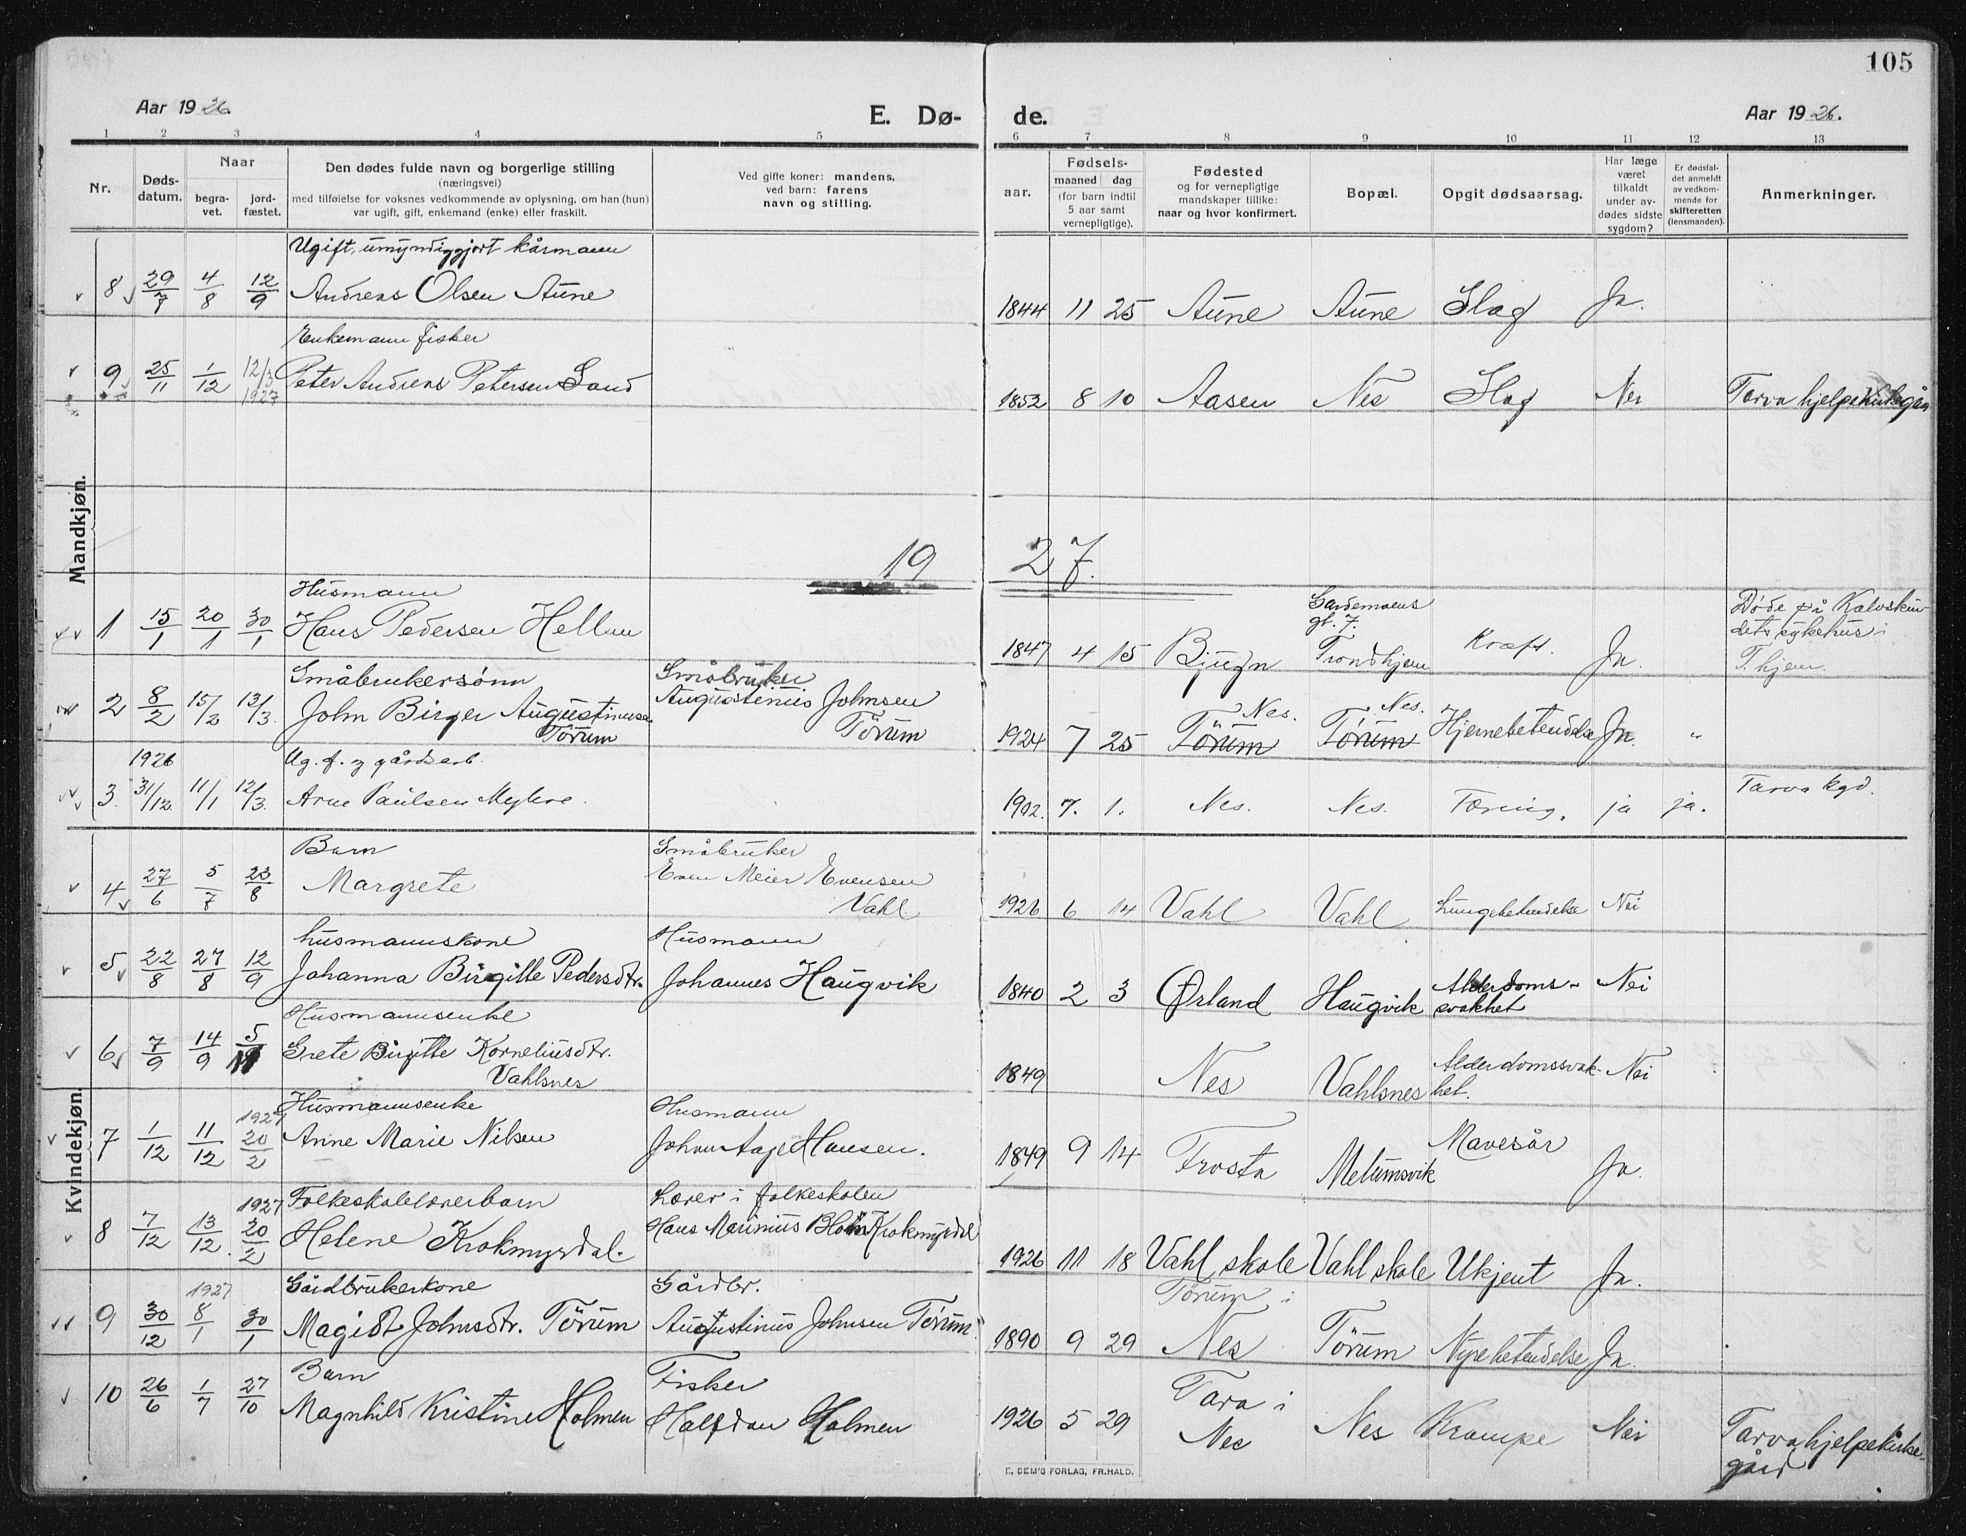 105
Aar 1926.
E. Dø-
de.
Aar 1926.
1 2 3 4 5 6 7 8 9 10 11 12 13
Nr.
Døds-
datum.
Naar
begra-
vet.
jord-
fæstet.
Den dødes fulde navn og borgerlige stilling
(næringsvei)
med tilføielse for voksnes vedkommende av oplysning, om han (hun)
var ugift, gift, enkemand (enke) eller fraskilt.
Ved gifte koner: mandens,
ved barn: farens
navn og stilling.
aar.
Fødsels-
maaned dag
(for barn indtil
5 aar samt
vernepligtige).
Fødested
og for vernepligtige
mandskaper tillike:
naar og hvor konfirmert.
Bopæl.
Opgit dødsaarsag.
Har læge
været
tilkaldt
under av-
dødes sidste
sygdom?
Er dødsfal-
det anmeldt
av vedkom-
mende for
skifteretten
(lensmanden).
Anmerkninger.
Mandkjøn.
Ugift, umyndiggjort kårmann
8 29/7 4/8 12/9 Andreas Olsen Aune 1844 11 25 Aune Aune Slag Ja.
Enkemann fisker
9 25/11 1/12 12/3 1927 Peter Andreas Petersen Sand 1852 8 10 Aasen Nes Slag Nei Tarva hjelpekirkegår
19 27.
Husmann
1 15/1 20/1 30/1 Hans Pedersen Hellun 1847 4 15 Bjugn Gardemoens gt. 7. Trondhjem Kræft. Ja. Døde på Kalvskin-
dets sykehus i
T.hjem.
Småbrukersønn Småbruker
2 8/2 15/2 13/3. John Birger Augustinusen Tørum Augustinus Johnsen Tørum 1924 7 25 Tørum Nes. Tørum Nes. Hjernebetendelse Ja. "
1926 Ug. f. og gårdsarb.
3. 31/12 11/1 12/3. Arne Paulsen Myhre. 1902. 7. 1. Nes. Nes. Tæring. ja ja. Tarva kgd.
Kvindekjøn.
Barn Småbruker
4 27/6 5/7 23/8 Margrete Even Meier Evensen Vahl 1926 6 14 Vahl Vahl Lungebetendelse Nei
husmannskone Husmann
5 22/8 27/8 12/9 Johanna Birgitte Pedersdtr. Johannes Haugvik 1840 2 3 Ørland Haugvik Alderdoms-
svakhet Nei
Husmannsenke
6 7/9 14/9 5/ Grete Birgitte Korneliusdtr.
Vahlsnes 1849 Nes Vahlsnes Alderdomssvak-
het. Nei
Husmannsenke Husmann
7 1/12 11/12 1927 20/2 Anne Marie Nilsen Johan Aage Hansen. 1849 9 14 Frosta Melumsvik Mavesår Ja.
Folkeskolelærerbarn Lærer i folkeskolen
8 7/12 13/12. 1927 20/2 Helene Krokmyrdal. Hans Marinius Krokmyrdal 1926 11 18 Vahl skole Vahl skole Ukjent Ja.
Gårdbrukerkone Gårdbr.
9 30/12 1927 8/1 30/1 Magidt Johnsdtr. Tørum Augustinius Johnsen Tørum 1890 9 29 Tørum i
Nes Tørum Nyrebetendelse Ja.
Barn Fisker
10 26/6 1/7 27/10 Magnhild Kristine Holmen Halfdan Holmen 1926 5 29 Tarva i
Nes Nes Krampe Nei Tarva hjelpekirke-
gård
E. SEM'S FORLAG, FR.HALD.